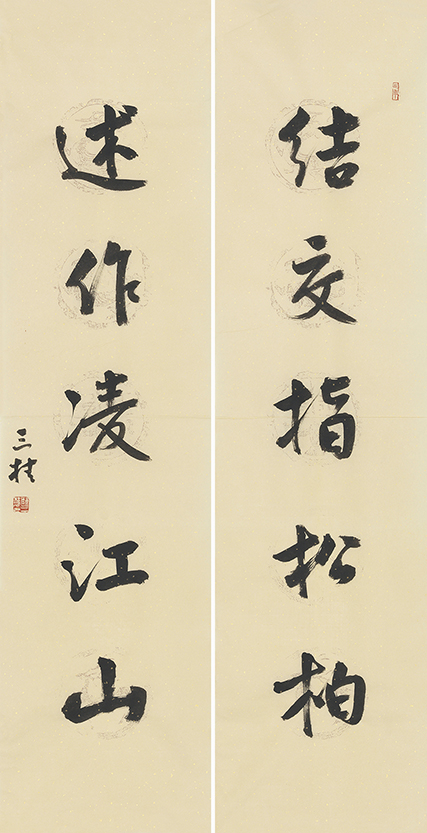 结交指松柏
述作凌江山
三桂